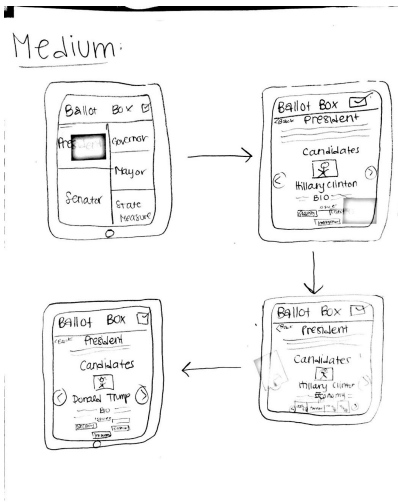 Medium:
Ballot Box
Governor
Mayor
Senator
State
Measure
Ballot Box
<Back President
Candidates
Hillary Clinton
BIO
Ballot Box
President
Candidates
Hillary Clinton
Economy
Ballot Box
President
Candidates
Donald Trump
BIO